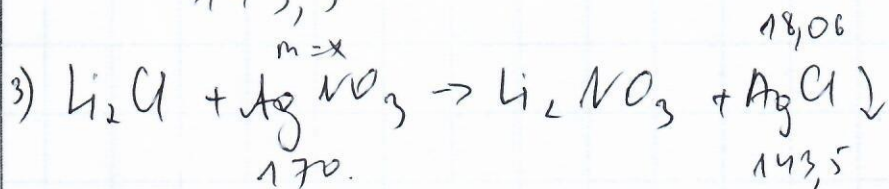 m = x 18,06
3) Li₂Cl + AgNO₃ → Li₂NO₃ + AgCl↓
170. 143,5